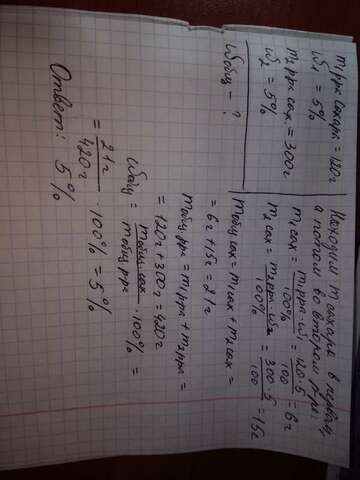 m₁ррс сахара = 120г
ω₁ = 5%
m₂ррс сах = 300г
ω₂ = 5%
ωобщ - ?
Находим m сахара в первом,
а потом во втором р-ре.
m₁сах = m₁рра · ω₁ / 100% = 120 · 5 / 100 = 6г
m₂сах = m₂рра · ω₂ / 100% = 300 · 5 / 100 = 15г
mобщ сах = m₁сах + m₂сах =
= 6г + 15г = 21г
mобщ рра = m₁рра + m₂рра =
= 120г + 300г = 420г
ωобщ = mобщ. сах / mобщ рра · 100% =
= 21г / 420г · 100% = 5%
Ответ: 5%